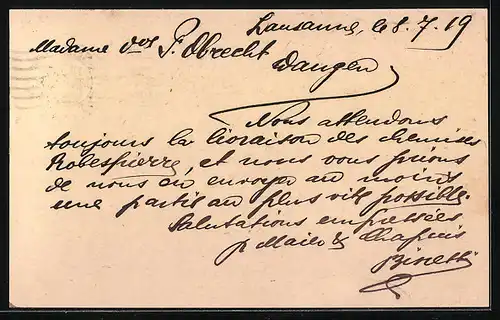 Lausanne, le 8.7.19
Madame Vve P. Obrecht
Wangen
Nous attendons
toujours la livraison des chemises
Robespierre, et nous vous prions
de nous en envoyer au moins
une partie au plus vite possible.
Salutations empressées
p Maier & Chapuis